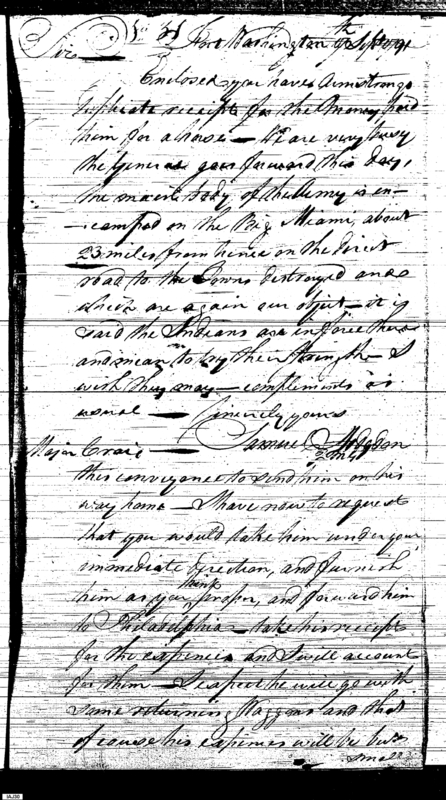 Fort Washington 9th Sept 1791
Sir
Enclosed you have Armstrongs
duplicate receipts for the Money paid
him for a horse — We are very busy
the General goes forward this day,
the main body of the Army is en-
-camped on the Big Miami, about
23 miles from hence on the direct
road to the Towns destroyed and
which are again our object — it is
said the Indians are in force there
and mean to try their strength — I
wish they may — compliments as
usual — Sincerely yours
Samuel Hodgdon
Major Craig QMG
this conveyance to send him on his
way home — I have now to request
that you would take him under your
immediate direction, and furnish
him as you think proper, and forward him
to Philadelphia — take his receipts
for the expences and I will account
for them — I expect he will go with
some returning Waggons and that
of course his expences will be but
small